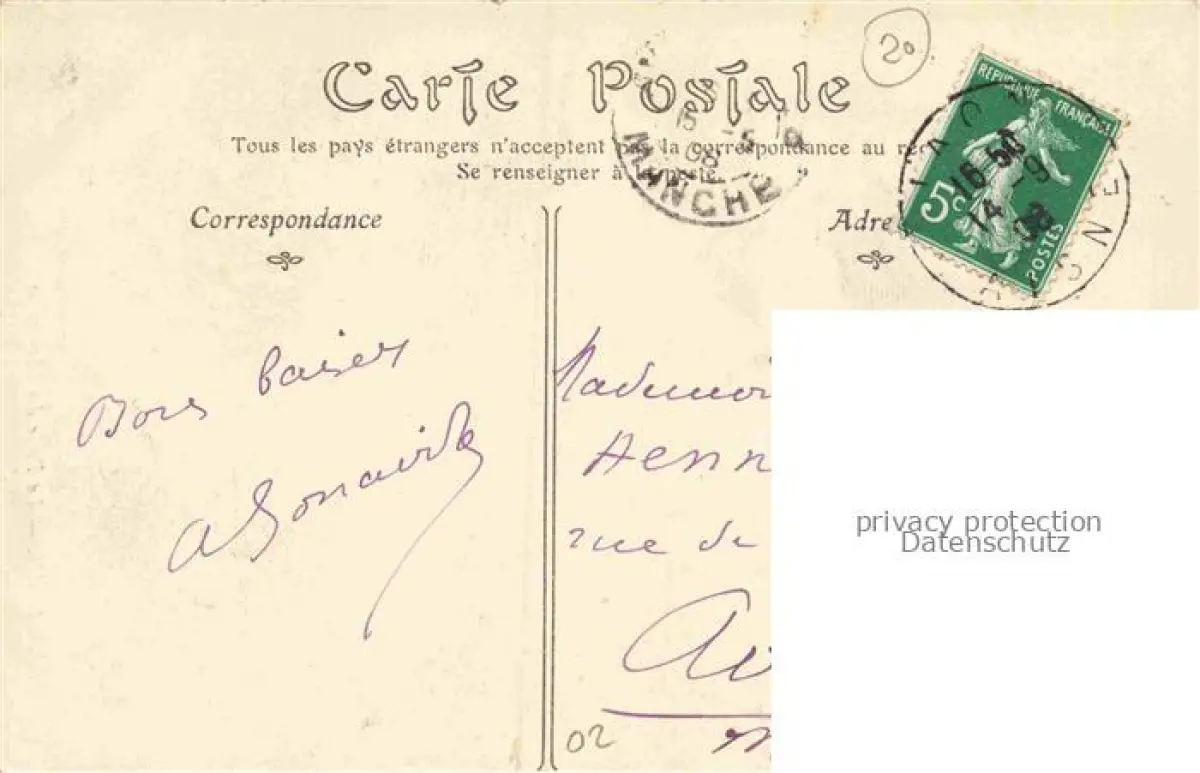 20
Carte Postale
Tous les pays étrangers n'acceptent pas la correspondance au
Se renseigner à la poste.
15 -5
08
MANCHE
RÉPUBLIQUE FRANÇAISE
5c
POSTES
16 50
14 -9
08
Correspondance
Adre
Bons baisers
Mademoi
Henn
rue de
Av
02
privacy protection
Datenschutz